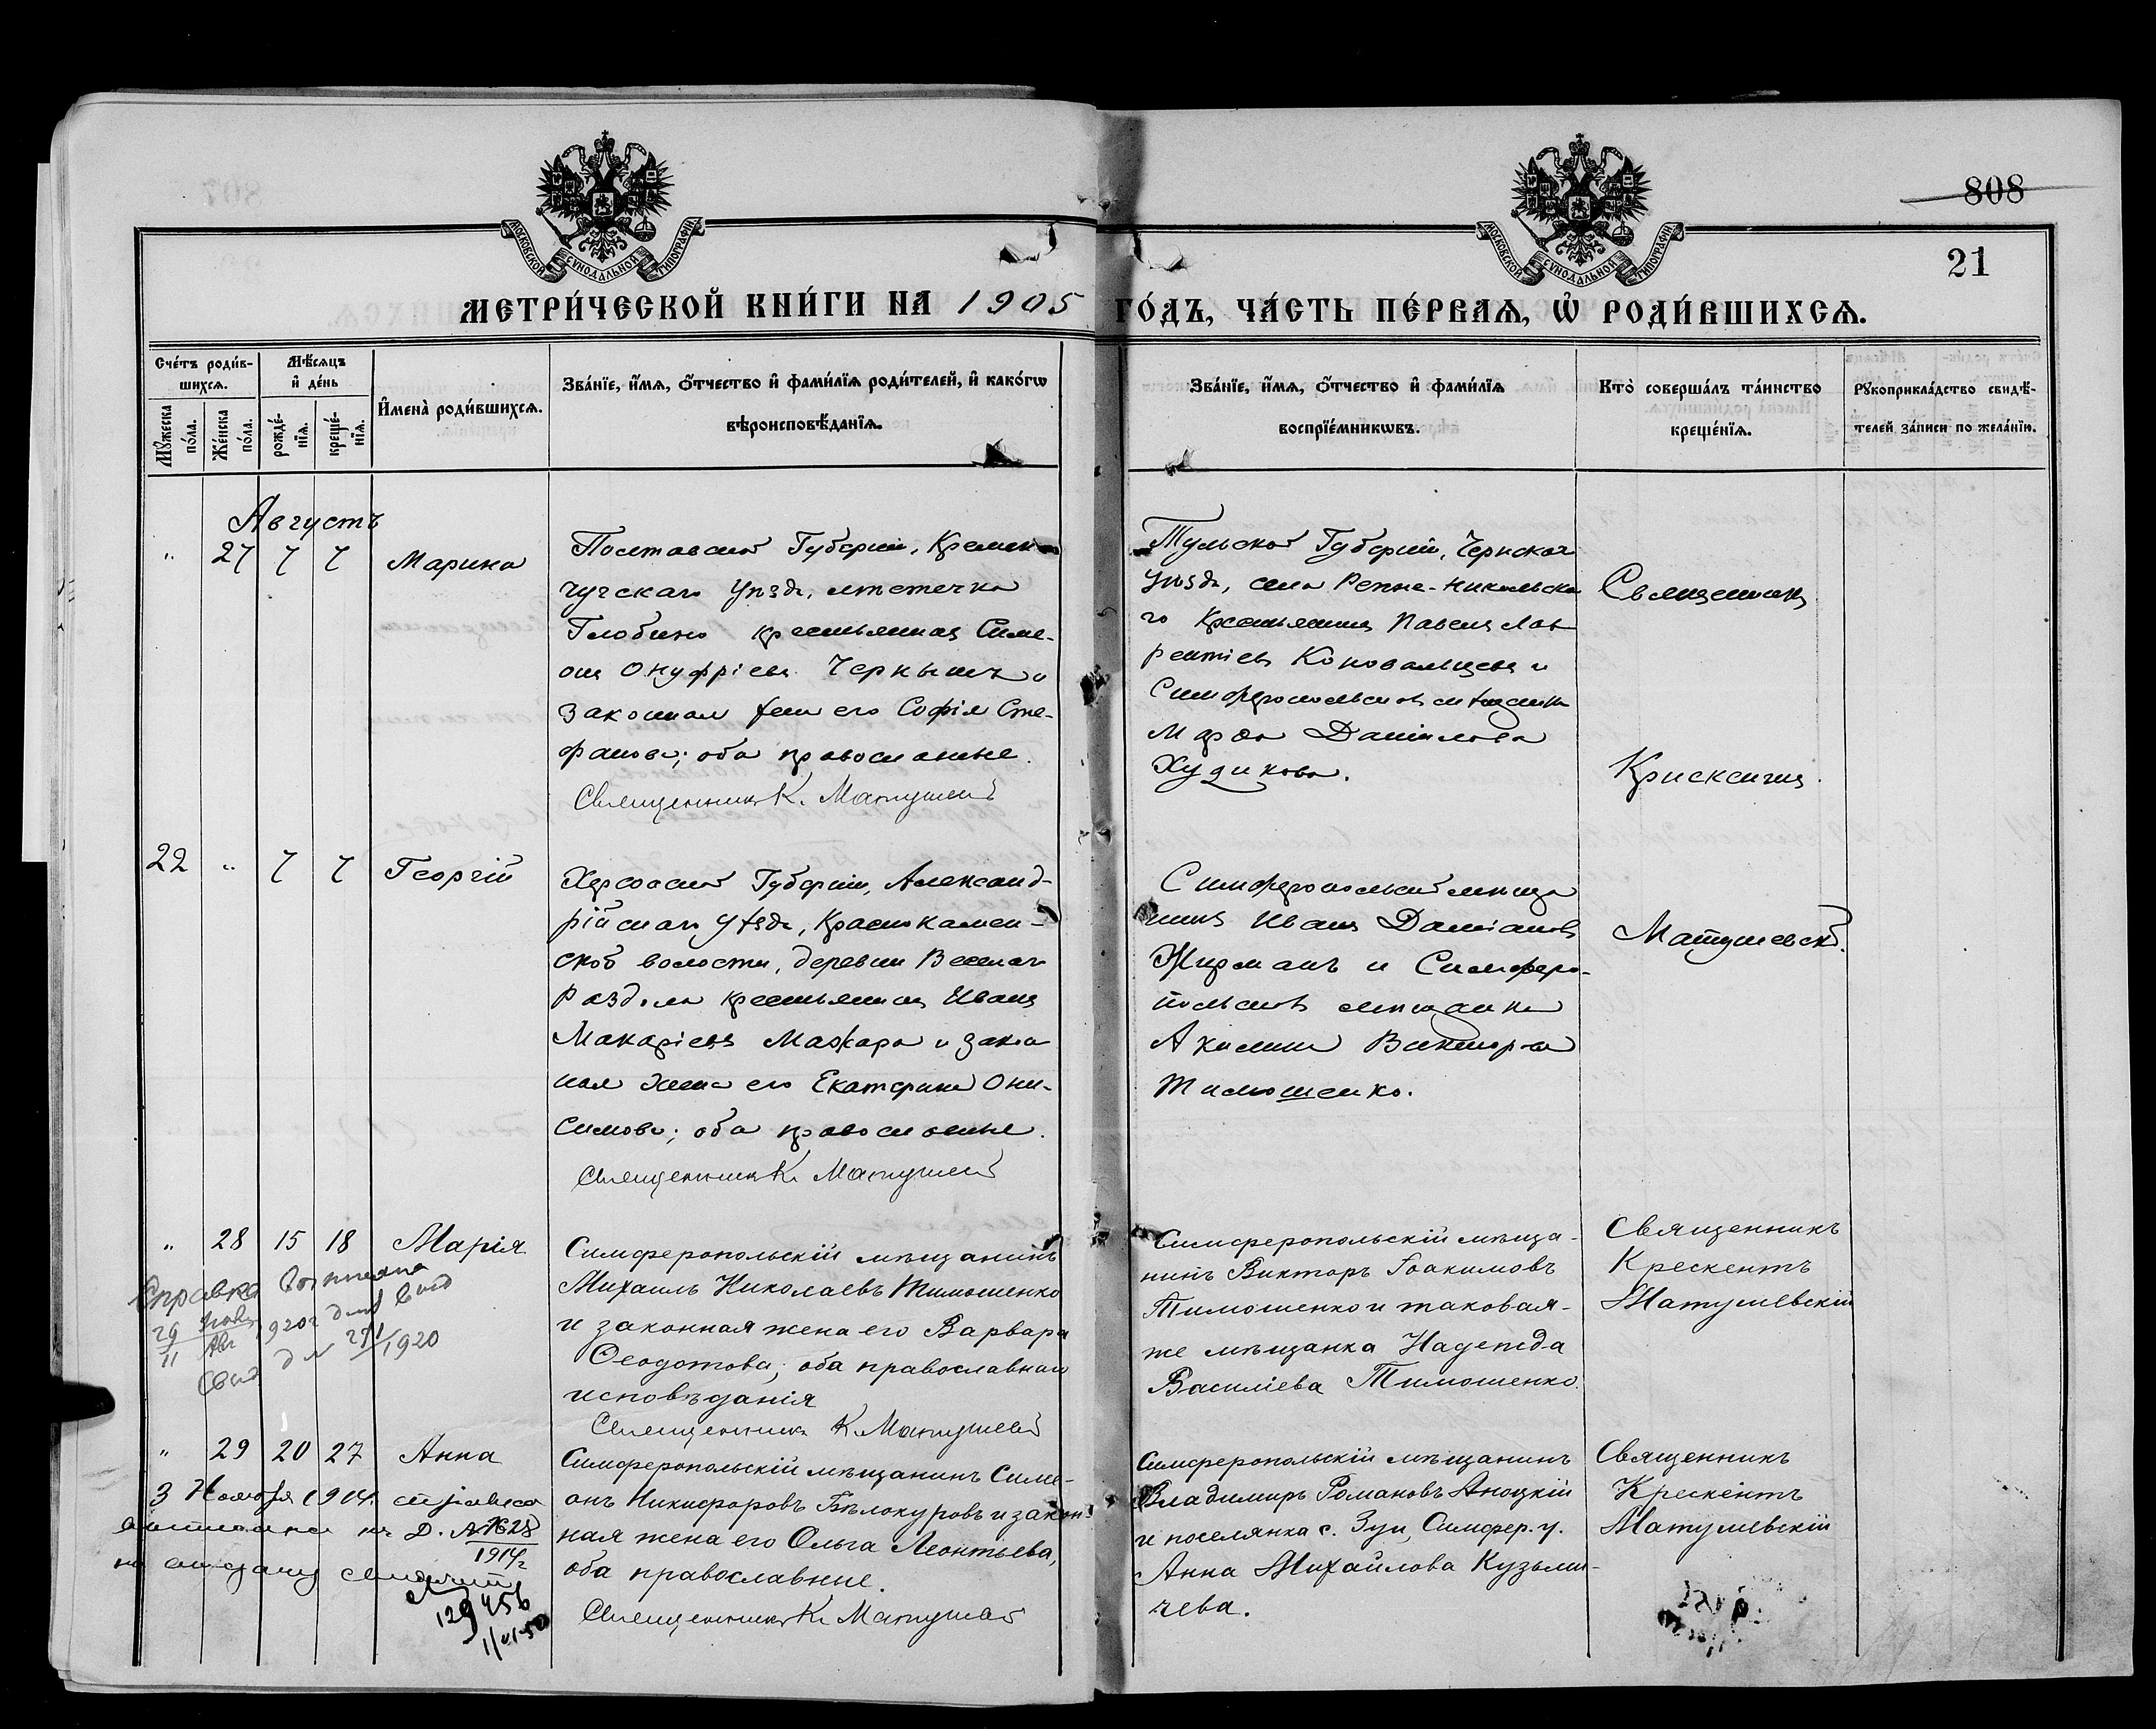 807
808
21
МОСКОВСКОЙ СѴНОДАЛЬНОЙ ТИПОГРАФІИ
МОСКОВСКОЙ СѴНОДАЛЬНОЙ ТИПОГРАФІИ
МЕТРИ́ЧЕСКОЙ КНИ́ГИ НА 1905 ГО́ДЪ, ЧА́СТЬ ПЕ́РВАѦ, Ѡ҆ РОДИ́ВШИХСѦ.
Сче́тъ роди́в-
шихсѧ.
Мꙋ́жеска
по́ла.
Же́нска
по́ла.
Мѣ́сѧцъ
и҆ де́нь
рожде́-
нїѧ.
креще́-
нїѧ.
И҆мена̀ роди́вшихсѧ.
Зва́нїе, и҆́мѧ, ѻ҆́тчество и҆ фами́лїѧ роди́телей, и҆ како́гѡ
вѣроисповѣ́данїѧ.
Зва́нїе, и҆́мѧ, ѻ҆́тчество и҆ фами́лїѧ
воспрїе́мникѡвъ.
Кто̀ соверша́лъ та́инство
креще́нїѧ.
Рꙋкоприкла́дство свидѣ́-
телей за́писи по жела́нїю.
Августъ
" 27 7 7 Марина
Полтавской Губерніи, Кремен-
чугскаго Уѣзда, мѣстечка
Глобино крестьянинъ Симе-
онъ Онуфріевъ Чернышъ и
законная жена его Софія Сте-
фанова; оба православные.
Священникъ К. Матушевскій
Тульской Губерніи, Чернскаго
Уѣзда, села Репне-Никольска
го крестьянинъ Павелъ Лав
рентіевъ Коновальцевъ и
Симферопольская мѣщанка
Марѳа Даніилова
Худикова.
Священникъ
Крискентъ
Матушевскій.
22 " 7 7 Георгій
Херсонской Губерніи, Александ-
рійскаго Уѣзда, Краснокамен-
ской волости, деревни Веселаго
Раздола крестьянинъ Иванъ
Макаріевъ Мажара и закон
ная жена его Екатерина Они-
симова; оба православные.
Священникъ К. Матушевскій
Симферопольскій мѣща
нинъ Иванъ Даміановъ
Жирманъ и Симферо-
польская мѣщанка
Акилина Викторова
Тимошенко.
" 28 15 18 Марія
Симферопольскій мѣщанинъ
Михаилъ Николаевъ Тимошенко
и законная жена его Варвара
Ѳеодотова; оба православнаго
исповѣданія
Священникъ К. Матушевскій
Симферопольскій мѣща-
нинъ Викторъ Іоакимовъ
Тимошенко и таковая-
же мѣщанка Надежда
Василіева Тимошенко.
Священникъ
Крескентъ
Матушевскій
Справка
29 1920
11 Авг
Свид 1920
" 29 20 27 Анна
3 Ноября 1914г. справка
№ 1628
1914г.
на выдачу
129456
Симферопольскій мѣщанинъ Симе-
онъ Никифоровъ Бѣлокуровъ и закон-
ная жена его Ольга Леонтьева,
оба православные.
Священникъ К. Матушевскій
Симферопольскій мѣщанинъ
Владимиръ Романовъ Яноцкій
и поселянка с. Зуи, Симфер. у.
Анна Михайлова Кузьми-
чева.
Священникъ
Крискентъ
Матушевскій